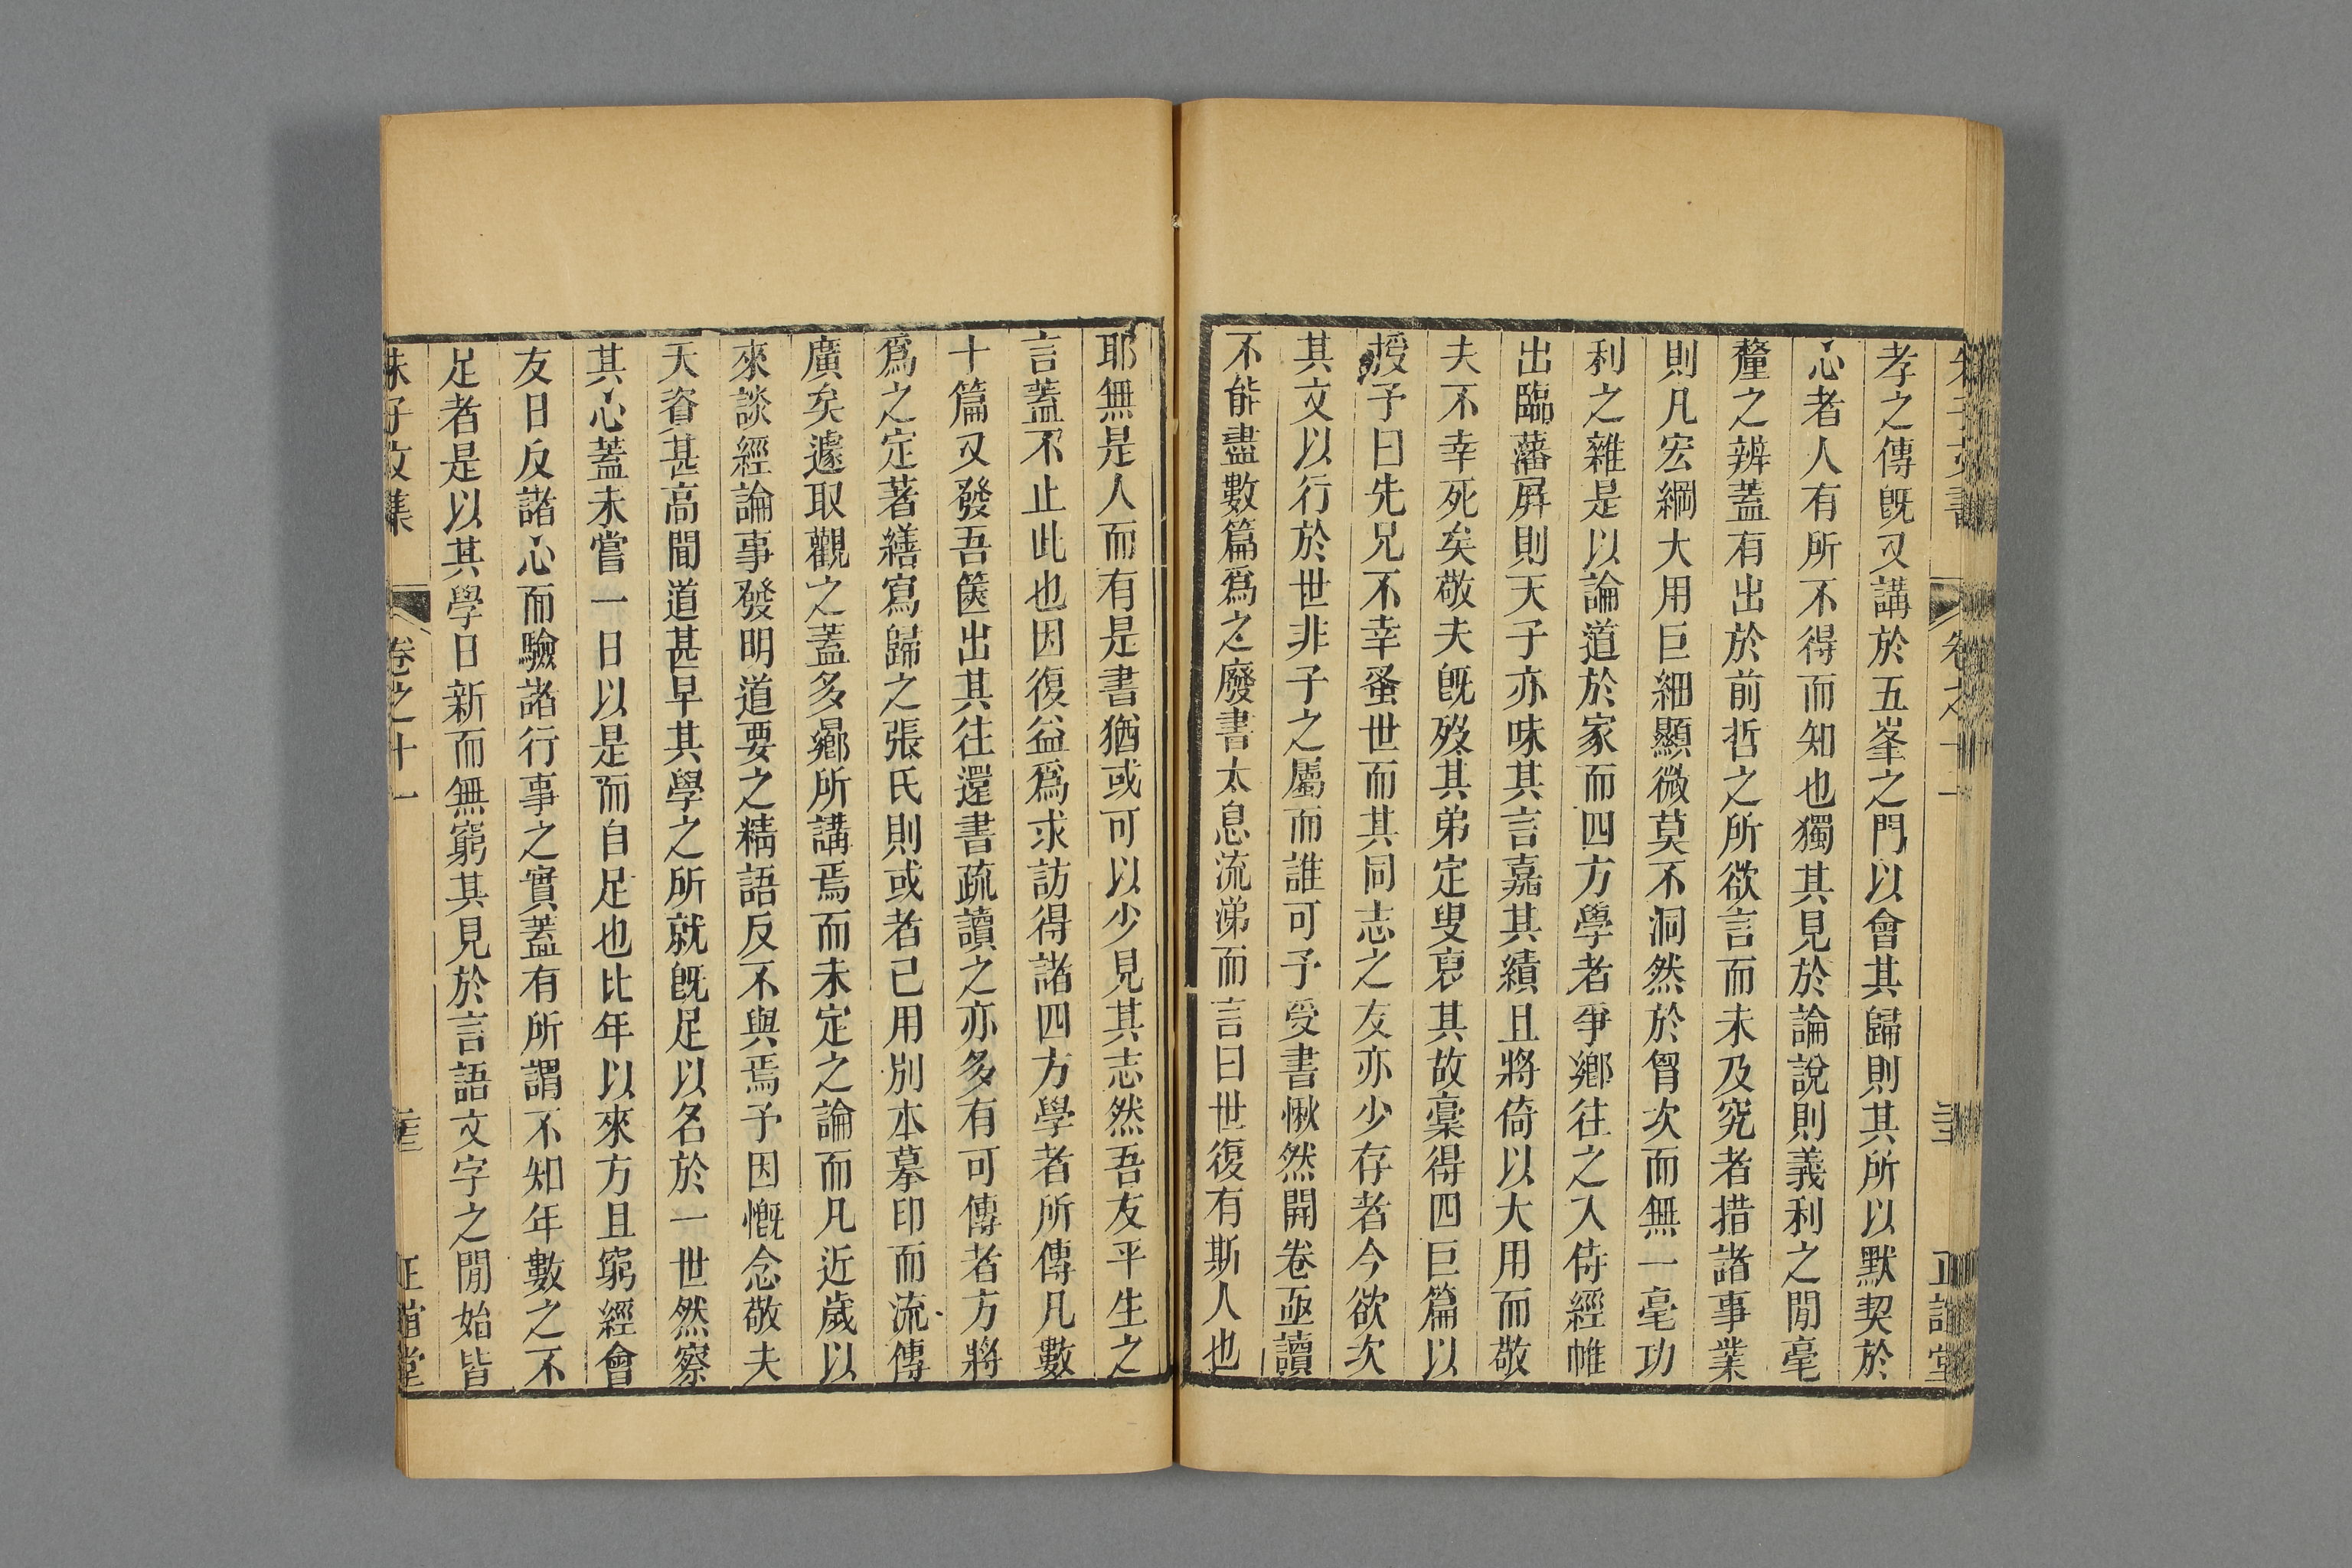 孝之傳既又講於五峯之門以會其歸則其所以默契於
心者人有所不得而知也獨其見於論說則義利之閒毫
釐之辨蓋有出於前哲之所欲言而未及究者措諸事業
則凡宏綱大用巨細顯微莫不洞然於胷次而無一毫功
利之雜是以論道於家而四方學者爭鄉往之入侍經帷
出臨藩屛則天子亦味其言嘉其績且將倚以大用而敬
夫不幸死矣敬夫既歿其弟定叟裒其故稾得四巨篇以
授予曰先兄不幸蚤世而其同志之友亦少存者今欲次
其文以行於世非子之屬而誰可予受書愀然開卷亟讀
不能盡數篇爲之廢書太息流涕而言曰世復有斯人也
耶無是人而有是書猶或可以少見其志然吾友平生之
言蓋不止此也因復益爲求訪得諸四方學者所傳凡數
十篇又發吾篋出其往還書疏讀之亦多有可傳者方將
爲之定著繕寫歸之張氏則或者已用別本摹印而流傳
廣矣遽取觀之蓋多鄉所講焉而未定之論而凡近歲以
來談經論事發明道要之精語反不與焉予因慨念敬夫
天資甚高聞道甚早其學之所就既足以名於一世然察
其心蓋未嘗一日以是而自足也比年以來方且窮經會
友日反諸心而驗諸行事之實蓋有所謂不知年數之不
足者是以其學日新而無窮其見於言語文字之閒始皆
朱子文集 卷之十一 正誼堂